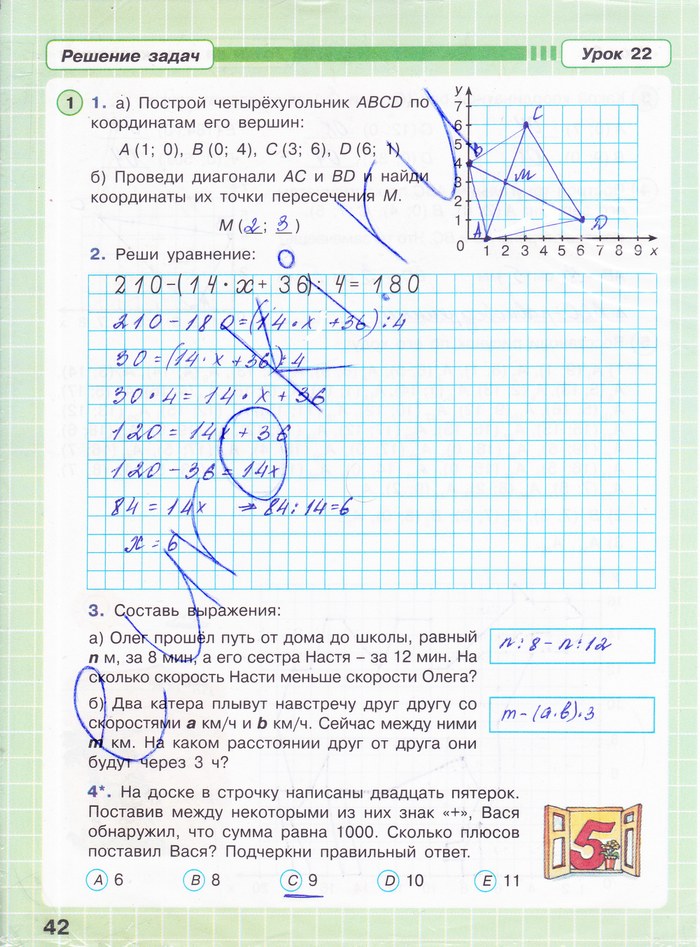 Решение задач
Урок 22
1
1. а) Построй четырёхугольник ABCD по
координатам его вершин:
A (1; 0), B (0; 4), C (3; 6), D (6; 1)
б) Проведи диагонали AC и BD и найди
координаты их точки пересечения M.
M (2; 3)
y
7
6
5
4
3
2
1
0
1 2 3 4 5 6 7 8 9 x
A
B
C
D
M
2. Реши уравнение:
210-(14·x+36):4=180
210-180=(14·x+36):4
30=(14·x+36):4
30·4=14·x+36
120=14x+36
120-36=14x
84=14x ⇒ 84:14=6
x=6
3. Составь выражения:
а) Олег прошёл путь от дома до школы, равный
n м, за 8 мин, а его сестра Настя – за 12 мин. На
сколько скорость Насти меньше скорости Олега?
n:8-n:12
б) Два катера плывут навстречу друг другу со
скоростями a км/ч и b км/ч. Сейчас между ними
m км. На каком расстоянии друг от друга они
будут через 3 ч?
m-(a·b)·3
4*. На доске в строчку написаны двадцать пятерок.
Поставив между некоторыми из них знак «+», Вася
обнаружил, что сумма равна 1000. Сколько плюсов
поставил Вася? Подчеркни правильный ответ.
5
A 6 B 8 C 9 D 10 E 11
42